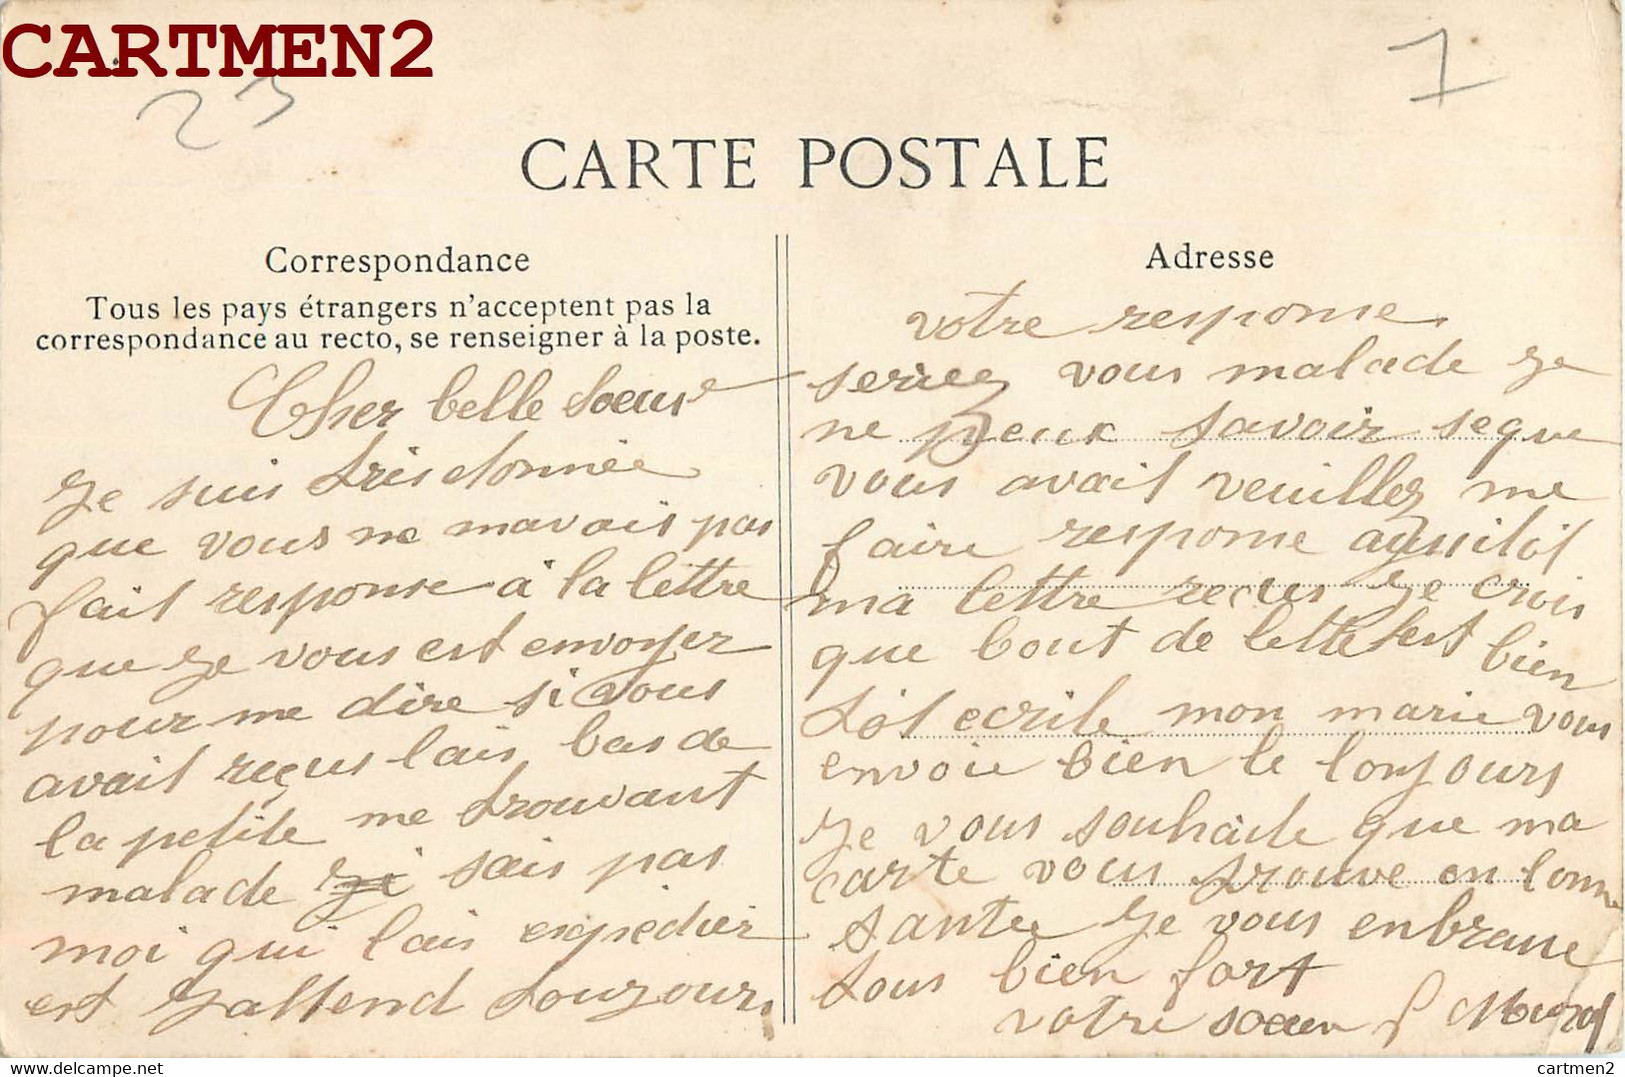 CARTMEN2
23
1
CARTE POSTALE
Correspondance
Tous les pays étrangers n'acceptent pas la
correspondance au recto, se renseigner à la poste.
Cher belle Soeur
Je suis tris etonnée
que vous ne mavais pas
fait response à la lettre
que Je vous est envoyer
pour me dire si vous
avait reçus lais bas de
la petite me trouvant
malade sais pas
moi qui lais expedier
est Jattend toujours
Adresse
votre response
seriez vous malade Je
ne peux savoir se que
vous avait veuillez me
faire response aussitot
ma lettre recus Je crois
que bout de lettre sest bien
tot ecrite mon marie vous
envoie bien le bonjours
Je vous souhaite que ma
carte vous trouve en bonne
santee Je vous enbrasse
tous bien fort
votre soeur
cartmen2